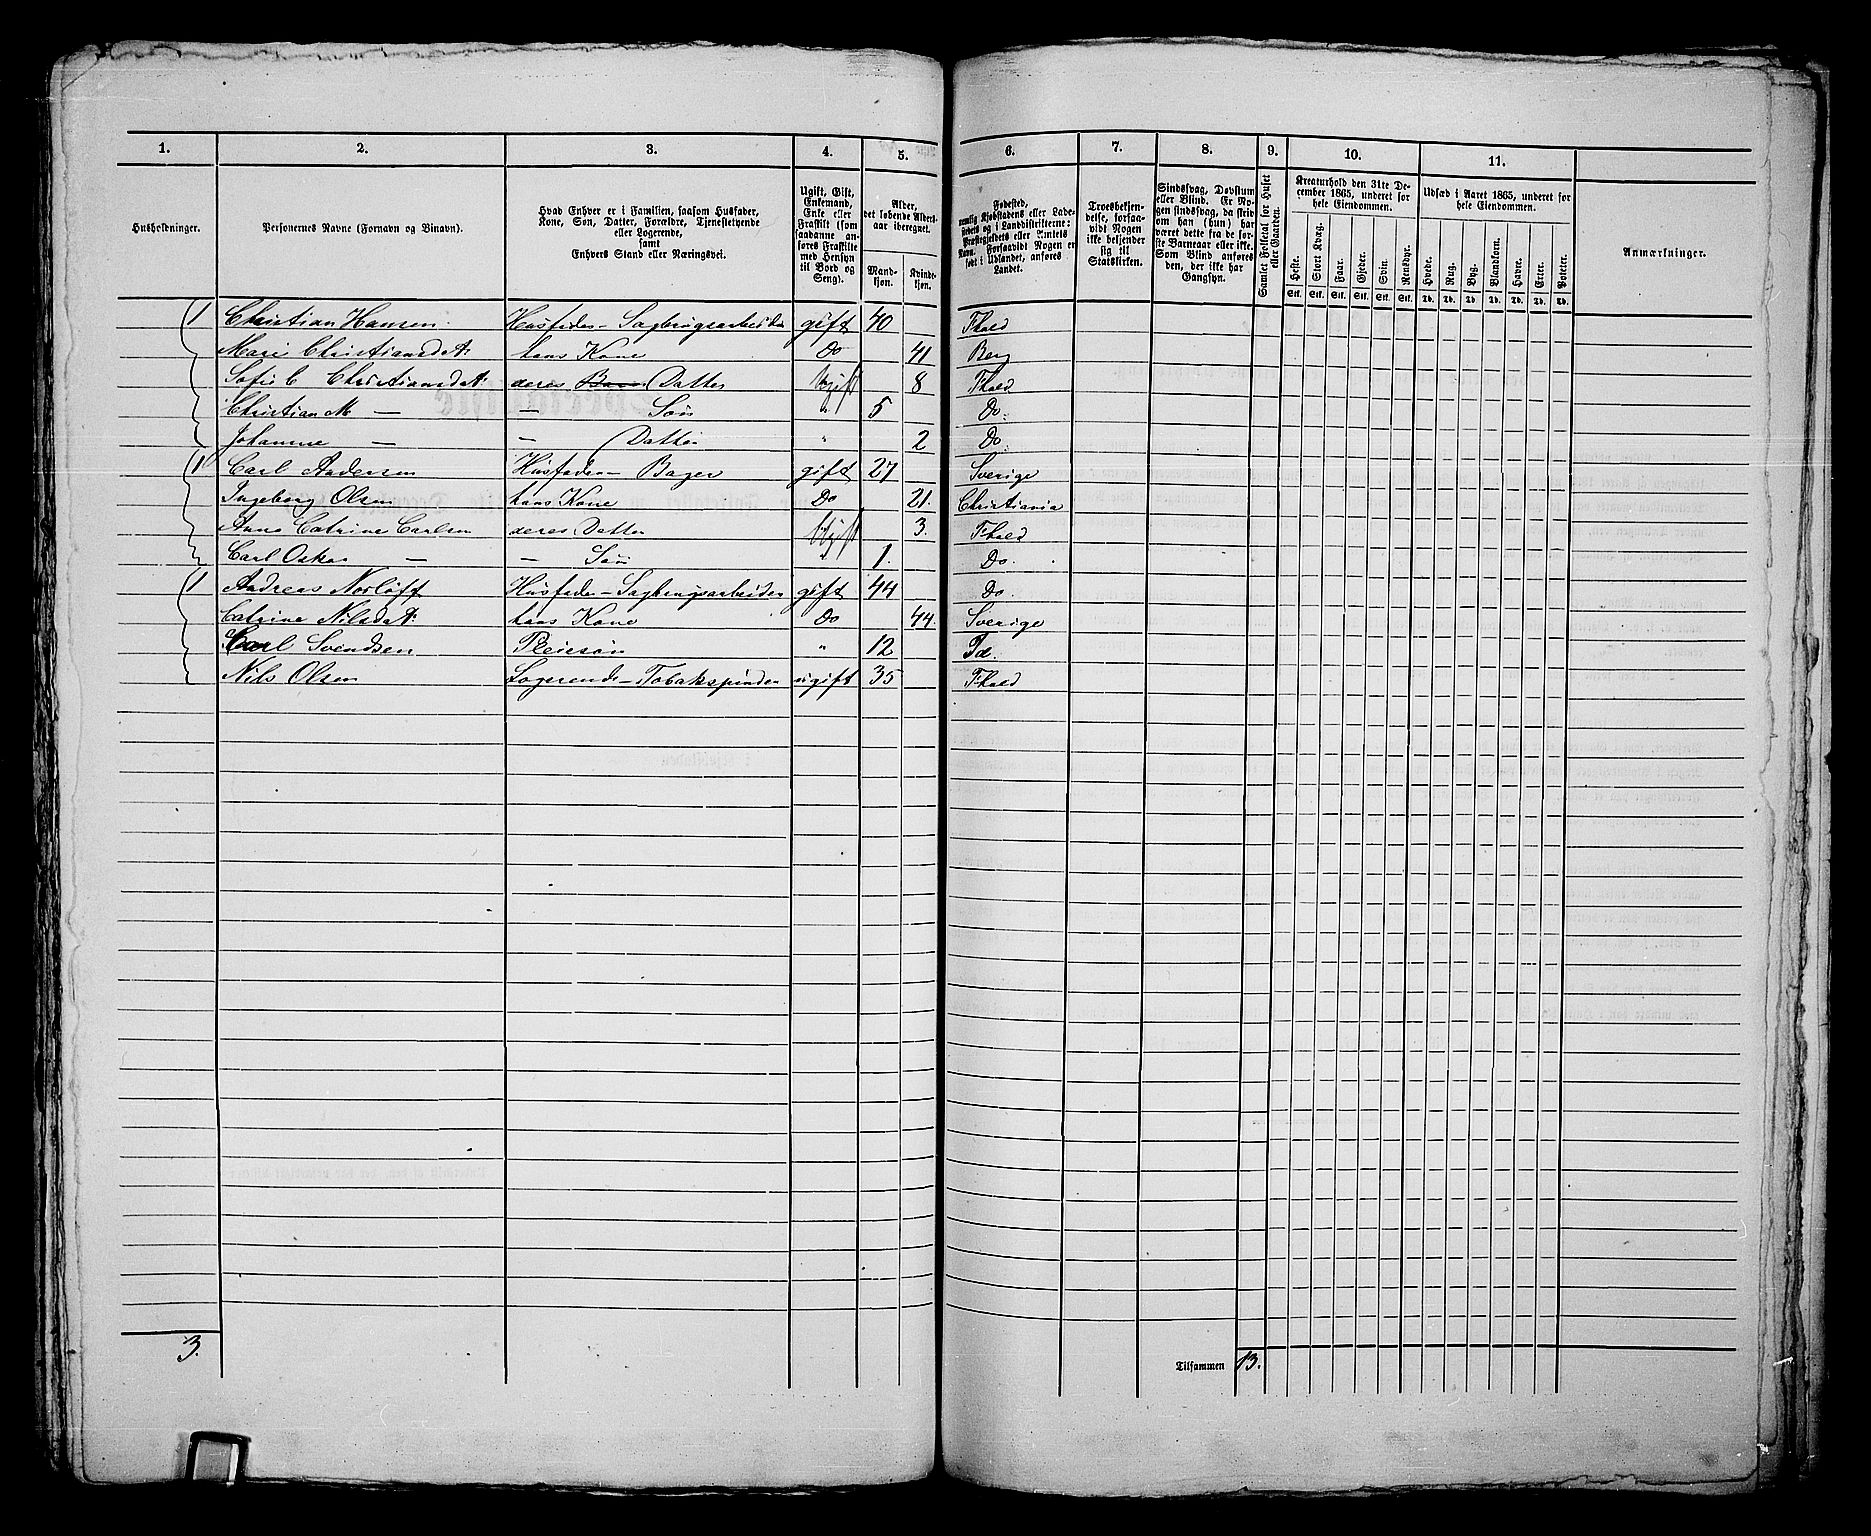 1. 2. 3. 4. 5. 6. 7. 8. 9. 10. 11.
Husholdninger.
Personernes Navne (Fornavn og Binavn).
Hvad Enhver er i Familien, saasom Husfader,
Kone, Søn, Datter, Forældre, Tjenestetyende
eller Logerende,
samt
Enhvers Stand eller Næringsvei.
Ugift, Gift,
Enkemand,
Enke eller
Fraskilt (som
saadanne an-
føres Fraskilte
med Hensyn
til Bord og
Seng).
Alder,
det løbende Alders-
aar iberegnet.
Mand-
kjøn.
Kvinde-
kjøn.
Fødested,
nemlig Kjøbstadens eller Lade-
stedets og i Landdistrikterne:
Præstegjeldets eller Amtets
Navn. Forsaavidt Nogen er
født i Udlandet, anføres
Landet.
Troesbekjen-
delse, forsaa-
vidt Nogen
ikke bekjender
sig til
Statskirken.
Sindssvag, Døvstum
eller Blind. Er No-
gen sindssvag, da skriv
om han (hun) har
været dette fra de før-
ste Barneaar eller ikke.
Som Blind anføres
den, der ikke har
Gangsyn.
Samlet Folketal for Huset
eller Gaarden.
Kreaturhold den 31te De-
cember 1865, underet for
hele Eiendommen.
Heste. Stort Kvæg. Faar. Gjeder. Svin. Rensdyr.
Stk. Stk. Stk. Stk. Stk. Stk.
Udsæd i Aaret 1865, underet for
hele Eiendommen.
Hvede. Rug. Byg. Blandkorn. Havre. Erter. Poteter.
Td. Td. Td. Td. Td. Td. Td.
Anmærkninger.
1 Christian Hansen Husfader – Sagbrugsarbeider gift 40 Fhald
Mari Christiansdat: hans Kone Do 41 Berg
Sofie C Christiansdat: deres Barn Datter Ugift 8 Fhald
Christian M — — Søn " 5 Do.
Johanne — — Datter " 2 Do.
1 Carl Andersen Husfader – Bager gift 27 Sverige
Ingeborg Olsen hans Kone Do 21. Christiania
Anne Catrine Carlsen deres Datter Ugift 3. Fhald
Carl Oskar — — Søn " 1. Do.
1 Andreas Norløff Husfader – Sagbrugsarbeider gift 44 Do.
Catrine Nilsdat: hans Kone Do 44. Sverige
Carl Svendsen Pleiesøn " 12 Id.
Nils Olsen Logerende – Tobakspinder ugift 35 Fhald
3.
Tilsammen 13.